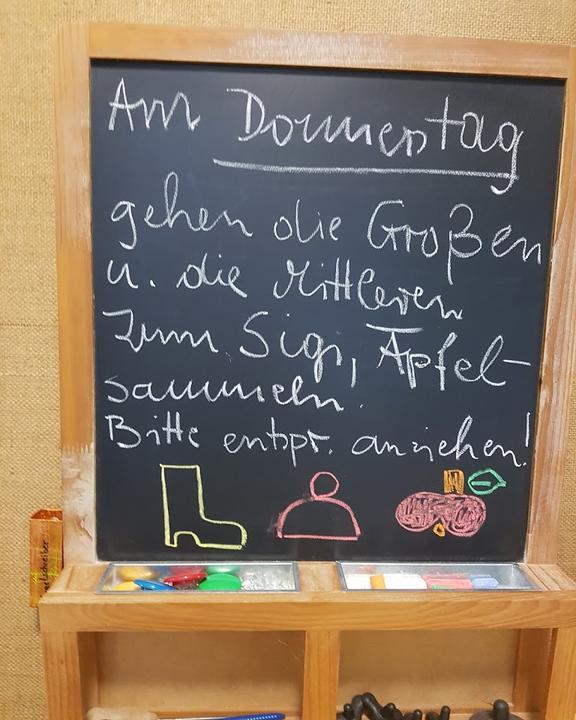 Am Donnerstag
gehen die Großen
u. die Mittleren
zum Sigi, Äpfel-
sammeln.
Bitte entspr. anziehen!